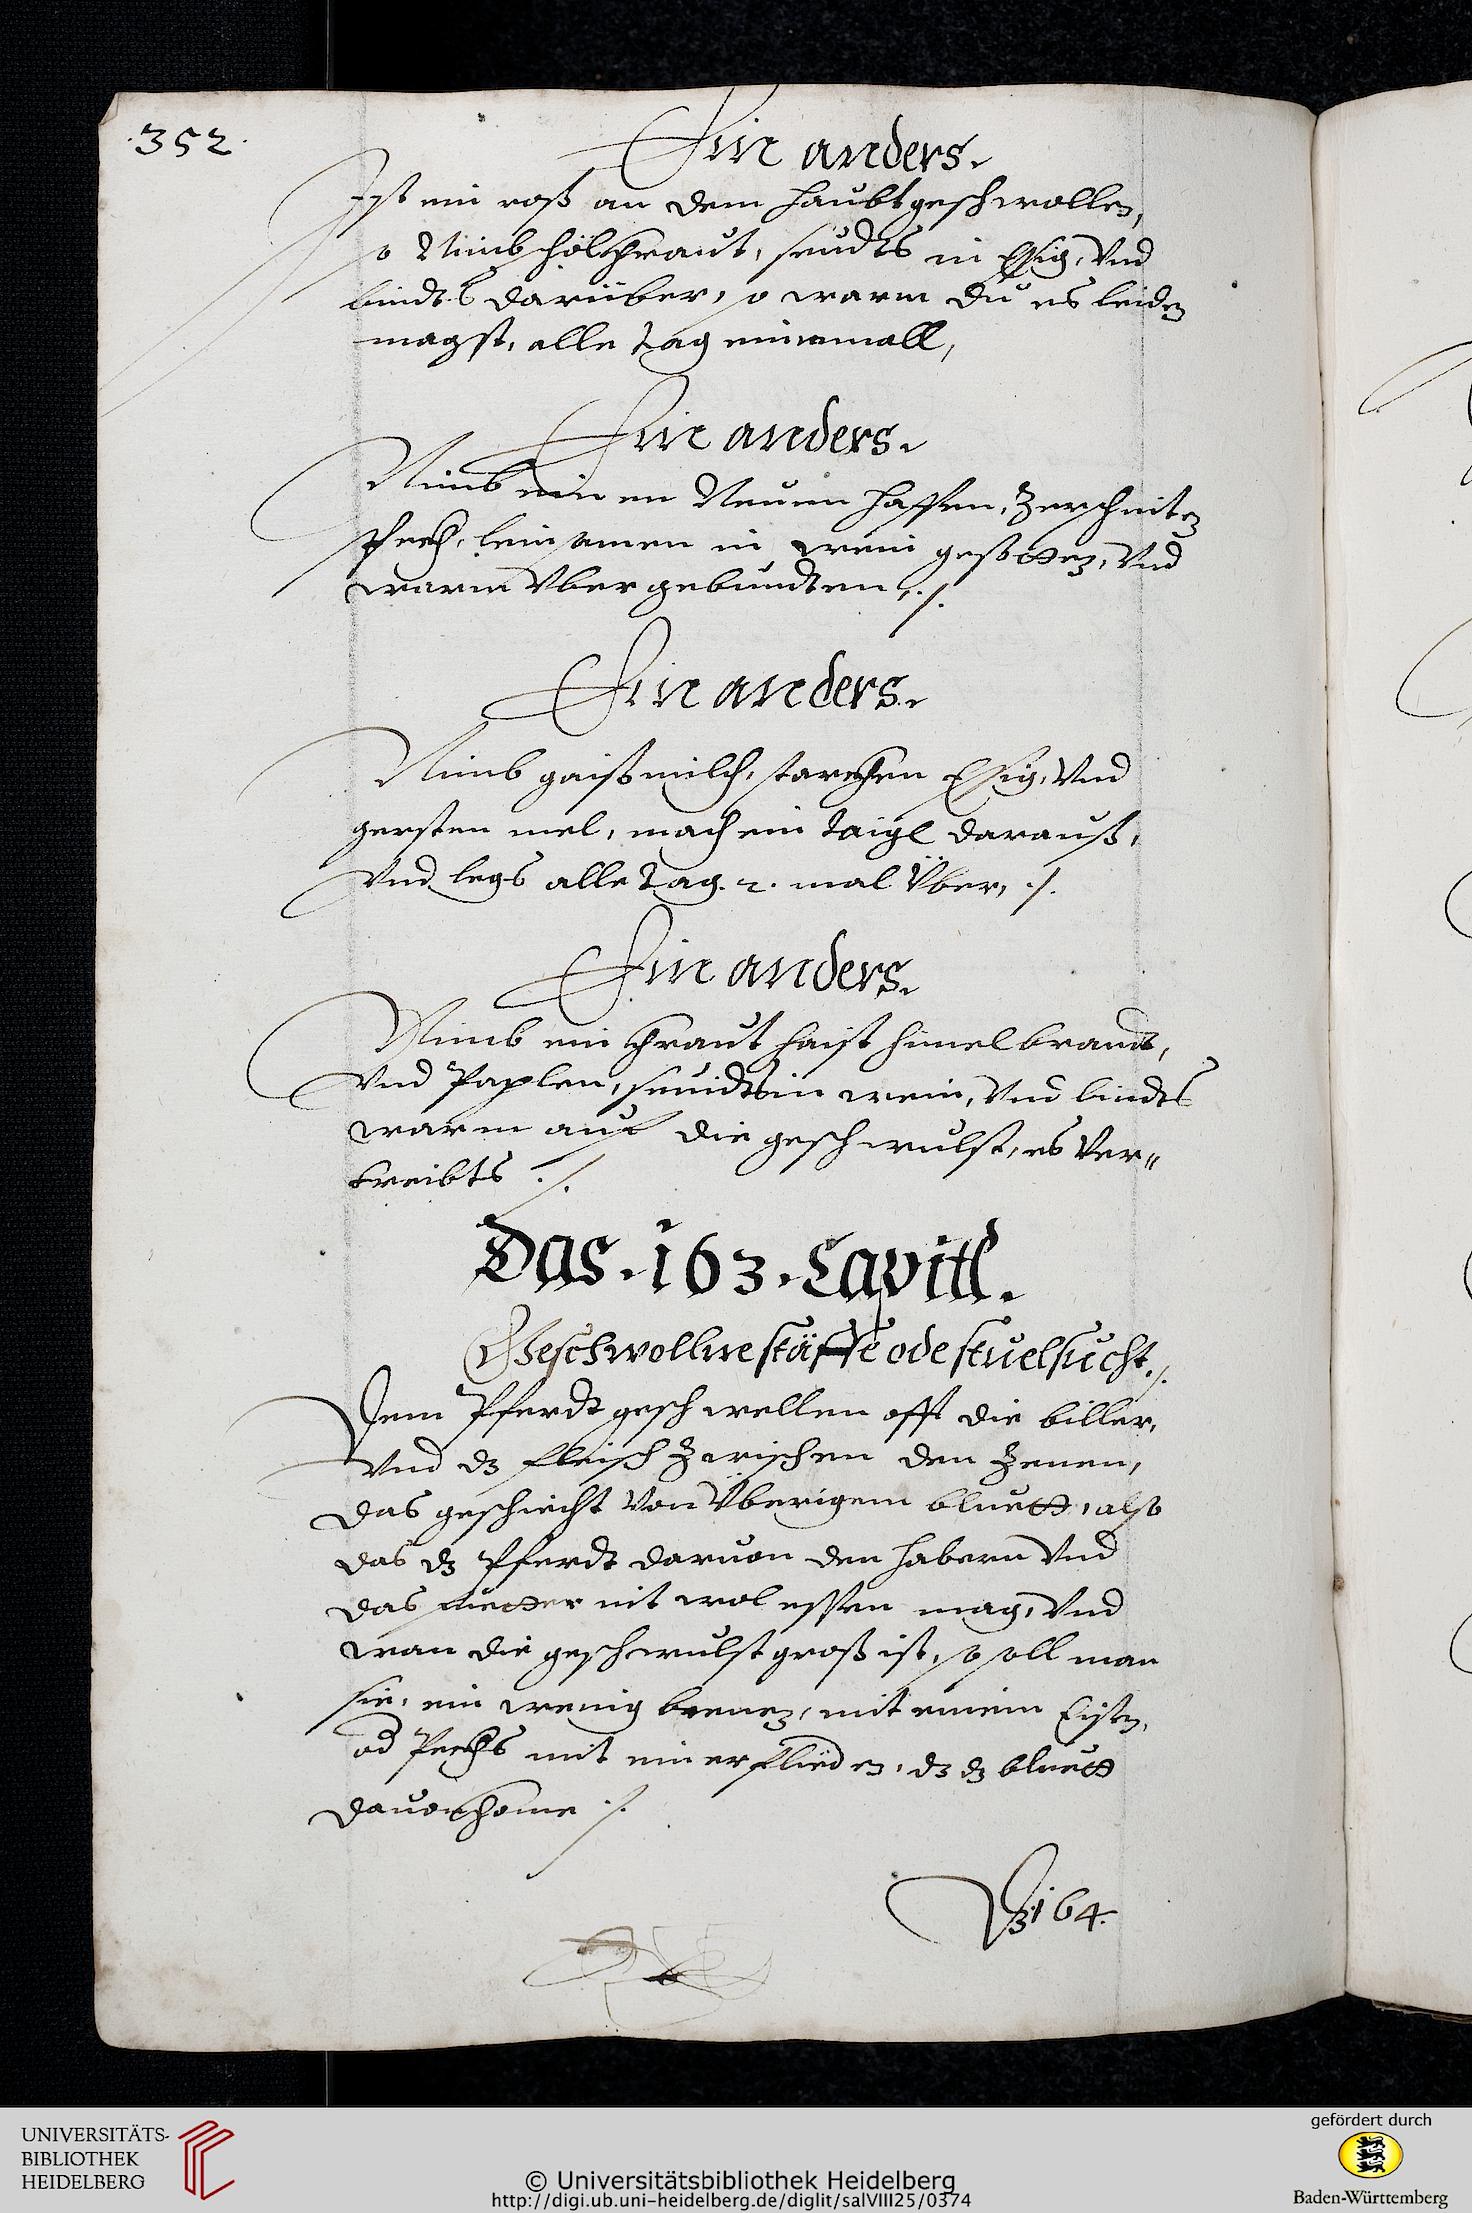 .352.
Ein anders.
Ist ein roß an dem haubt geschwollen,
so Nimb hölkraut, seudts in Essig, Vnd
bindts darüber, so warm du es leiden
magst, alle tag ein mall,
Ein anders.
Nimb ein en Neuen haffen, Zerschniten
Pech, lein samen in wein gesotten, Vnd
warm Vber gebundten, ./.
Ein anders.
Nimb gaißmilch, starkhen Essig, Vnd
gersten mel, mach ein taigl darauß,
Vnd legs alle tag .2. mal Über, ./.
Ein anders.
Nimb ein khraut haist himelbrandt,
Vnd Paplen, seudts in wein, Vnd bindts
warm auf die geschwulst, es Ver=
treibts ./.
Das .163. Capitl.
Geschwollne oder
Dem Pferdt geschwellen offt die biller,
Vnd dz fleisch Zwischen den Zenen,
das geschicht Von Überigem bluett, also
das dz Pferdt daruon den habern Vnd
das fuetter nit wol essen mag, Vnd
wan die geschwulst groß ist, so soll man
sie, ein wenig brenen, mit einem Eisen,
od Pickhs mit einer flieden, dz dz bluett
dauon khome ./.
164.
UNIVERSITÄTS-
BIBLIOTHEK
HEIDELBERG
© Universitätsbibliothek Heidelberg
http://digi.ub.uni-heidelberg.de/diglit/salVIII25/0374
gefördert durch
Baden-Württemberg